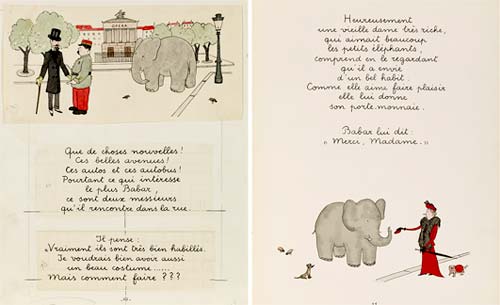 OPERA
Que de choses nouvelles!
Ces belles avenues!
Ces autos et ces autobus!
Pourtant ce qui intéresse
le plus Babar,
ce sont deux messieurs
qu'il rencontre dans la rue.
Il pense:
„Vraiment ils sont très bien habillés.
Je voudrais bien avoir aussi
un beau costume......
Mais comment faire???
Heureusement
une vieille dame très riche,
qui aimait beaucoup
les petits éléphants,
comprend en le regardant
qu'il a envie
d'un bel habit.
Comme elle aime faire plaisir
elle lui donne
son porte-monnaie.
Babar lui dit:
„Merci, Madame."